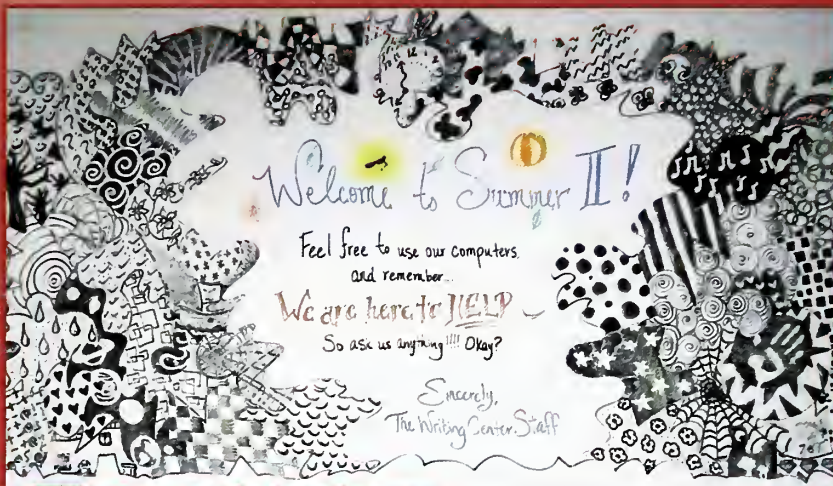 Welcome to Summer II!
Feel free to use our computers
and remember...
We are here to HELP
So ask us anything!!!! Okay?
Sincerely,
The Writing Center Staff